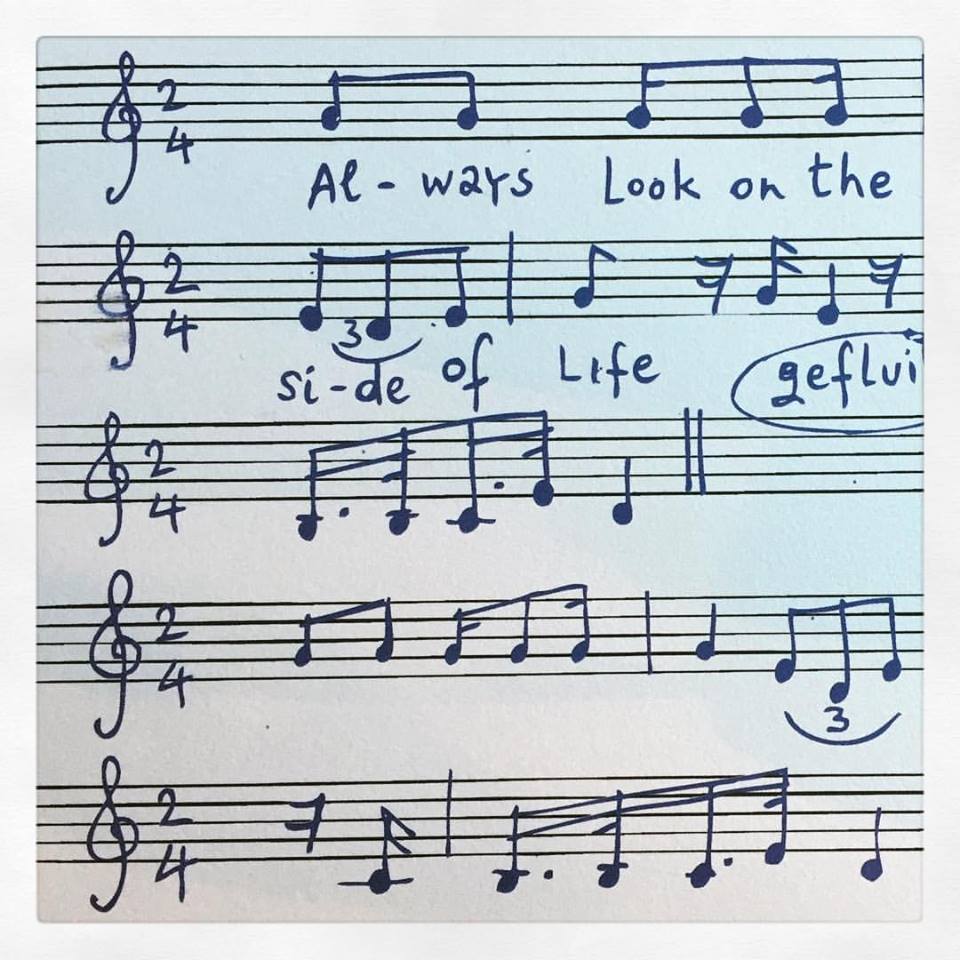 2
4
Al - ways Look on the
2
4
3
si-de of Life geflui
2
4
2
4
3
2
4